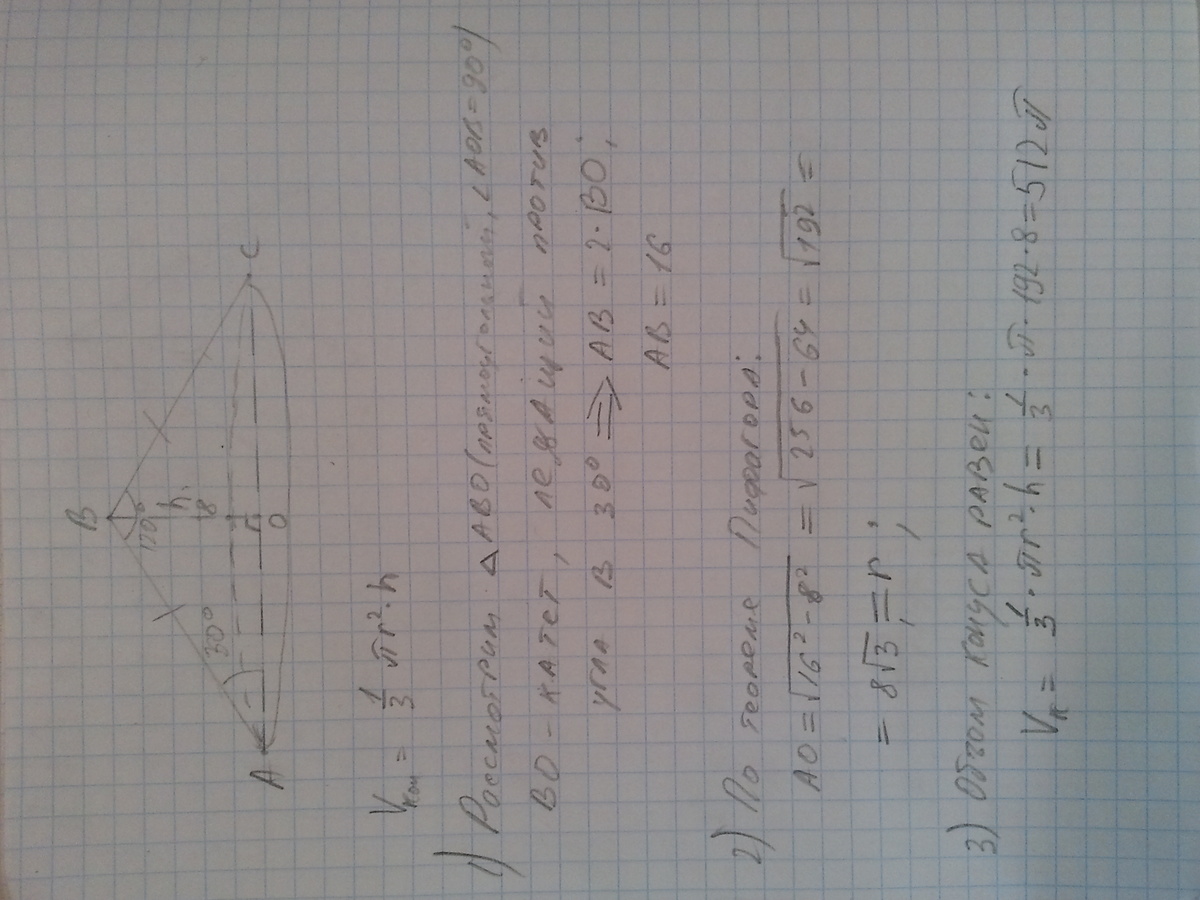 B
120°
h
8
30°
A
O
C
Vкон = 1/3 πr²·h
1) Рассмотрим △ABO (прямоугольный, ∠AOB=90°)
BO - катет, лежащий против
угла в 30° ⟹ AB = 2·BO;
AB = 16
2) По теореме Пифагора:
AO = √(16²-8²) = √(256-64) = √192 =
= 8√3 = r;
3) Объём конуса равен:
Vк = 1/3·πr²·h = 1/3·π·192·8=512π